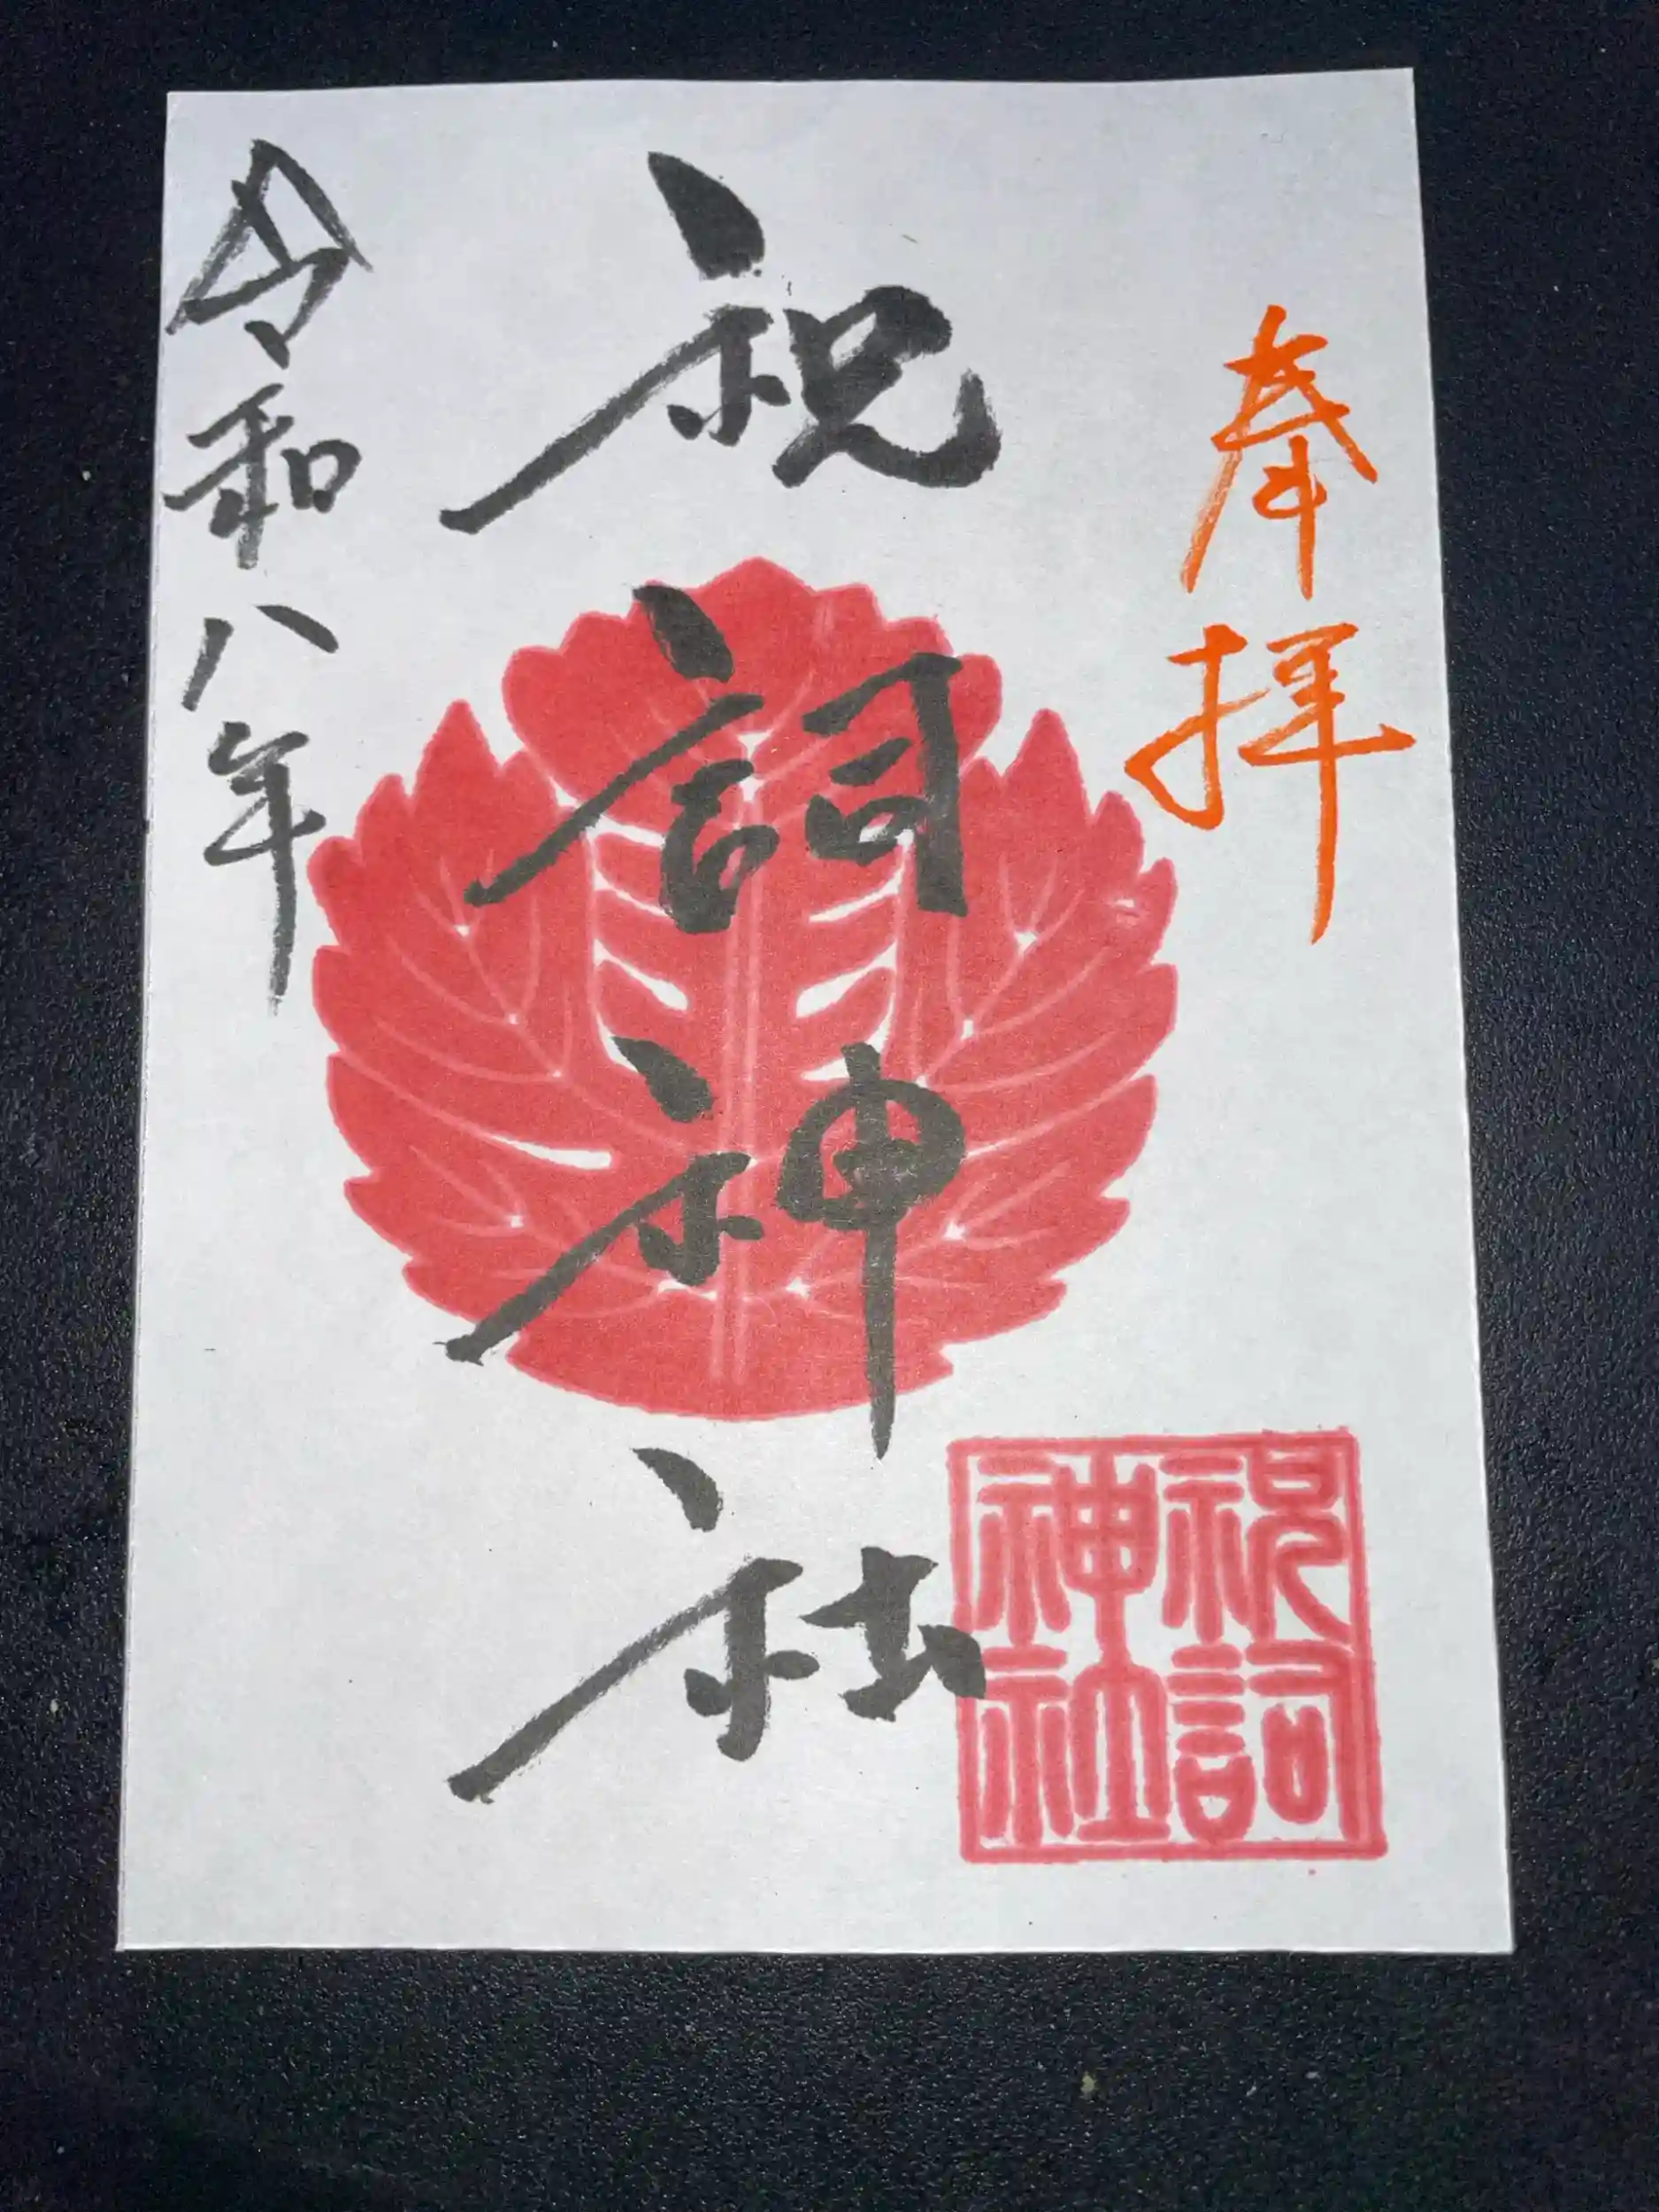 奉拝
祝詞神社
令和八年
祝詞
神社